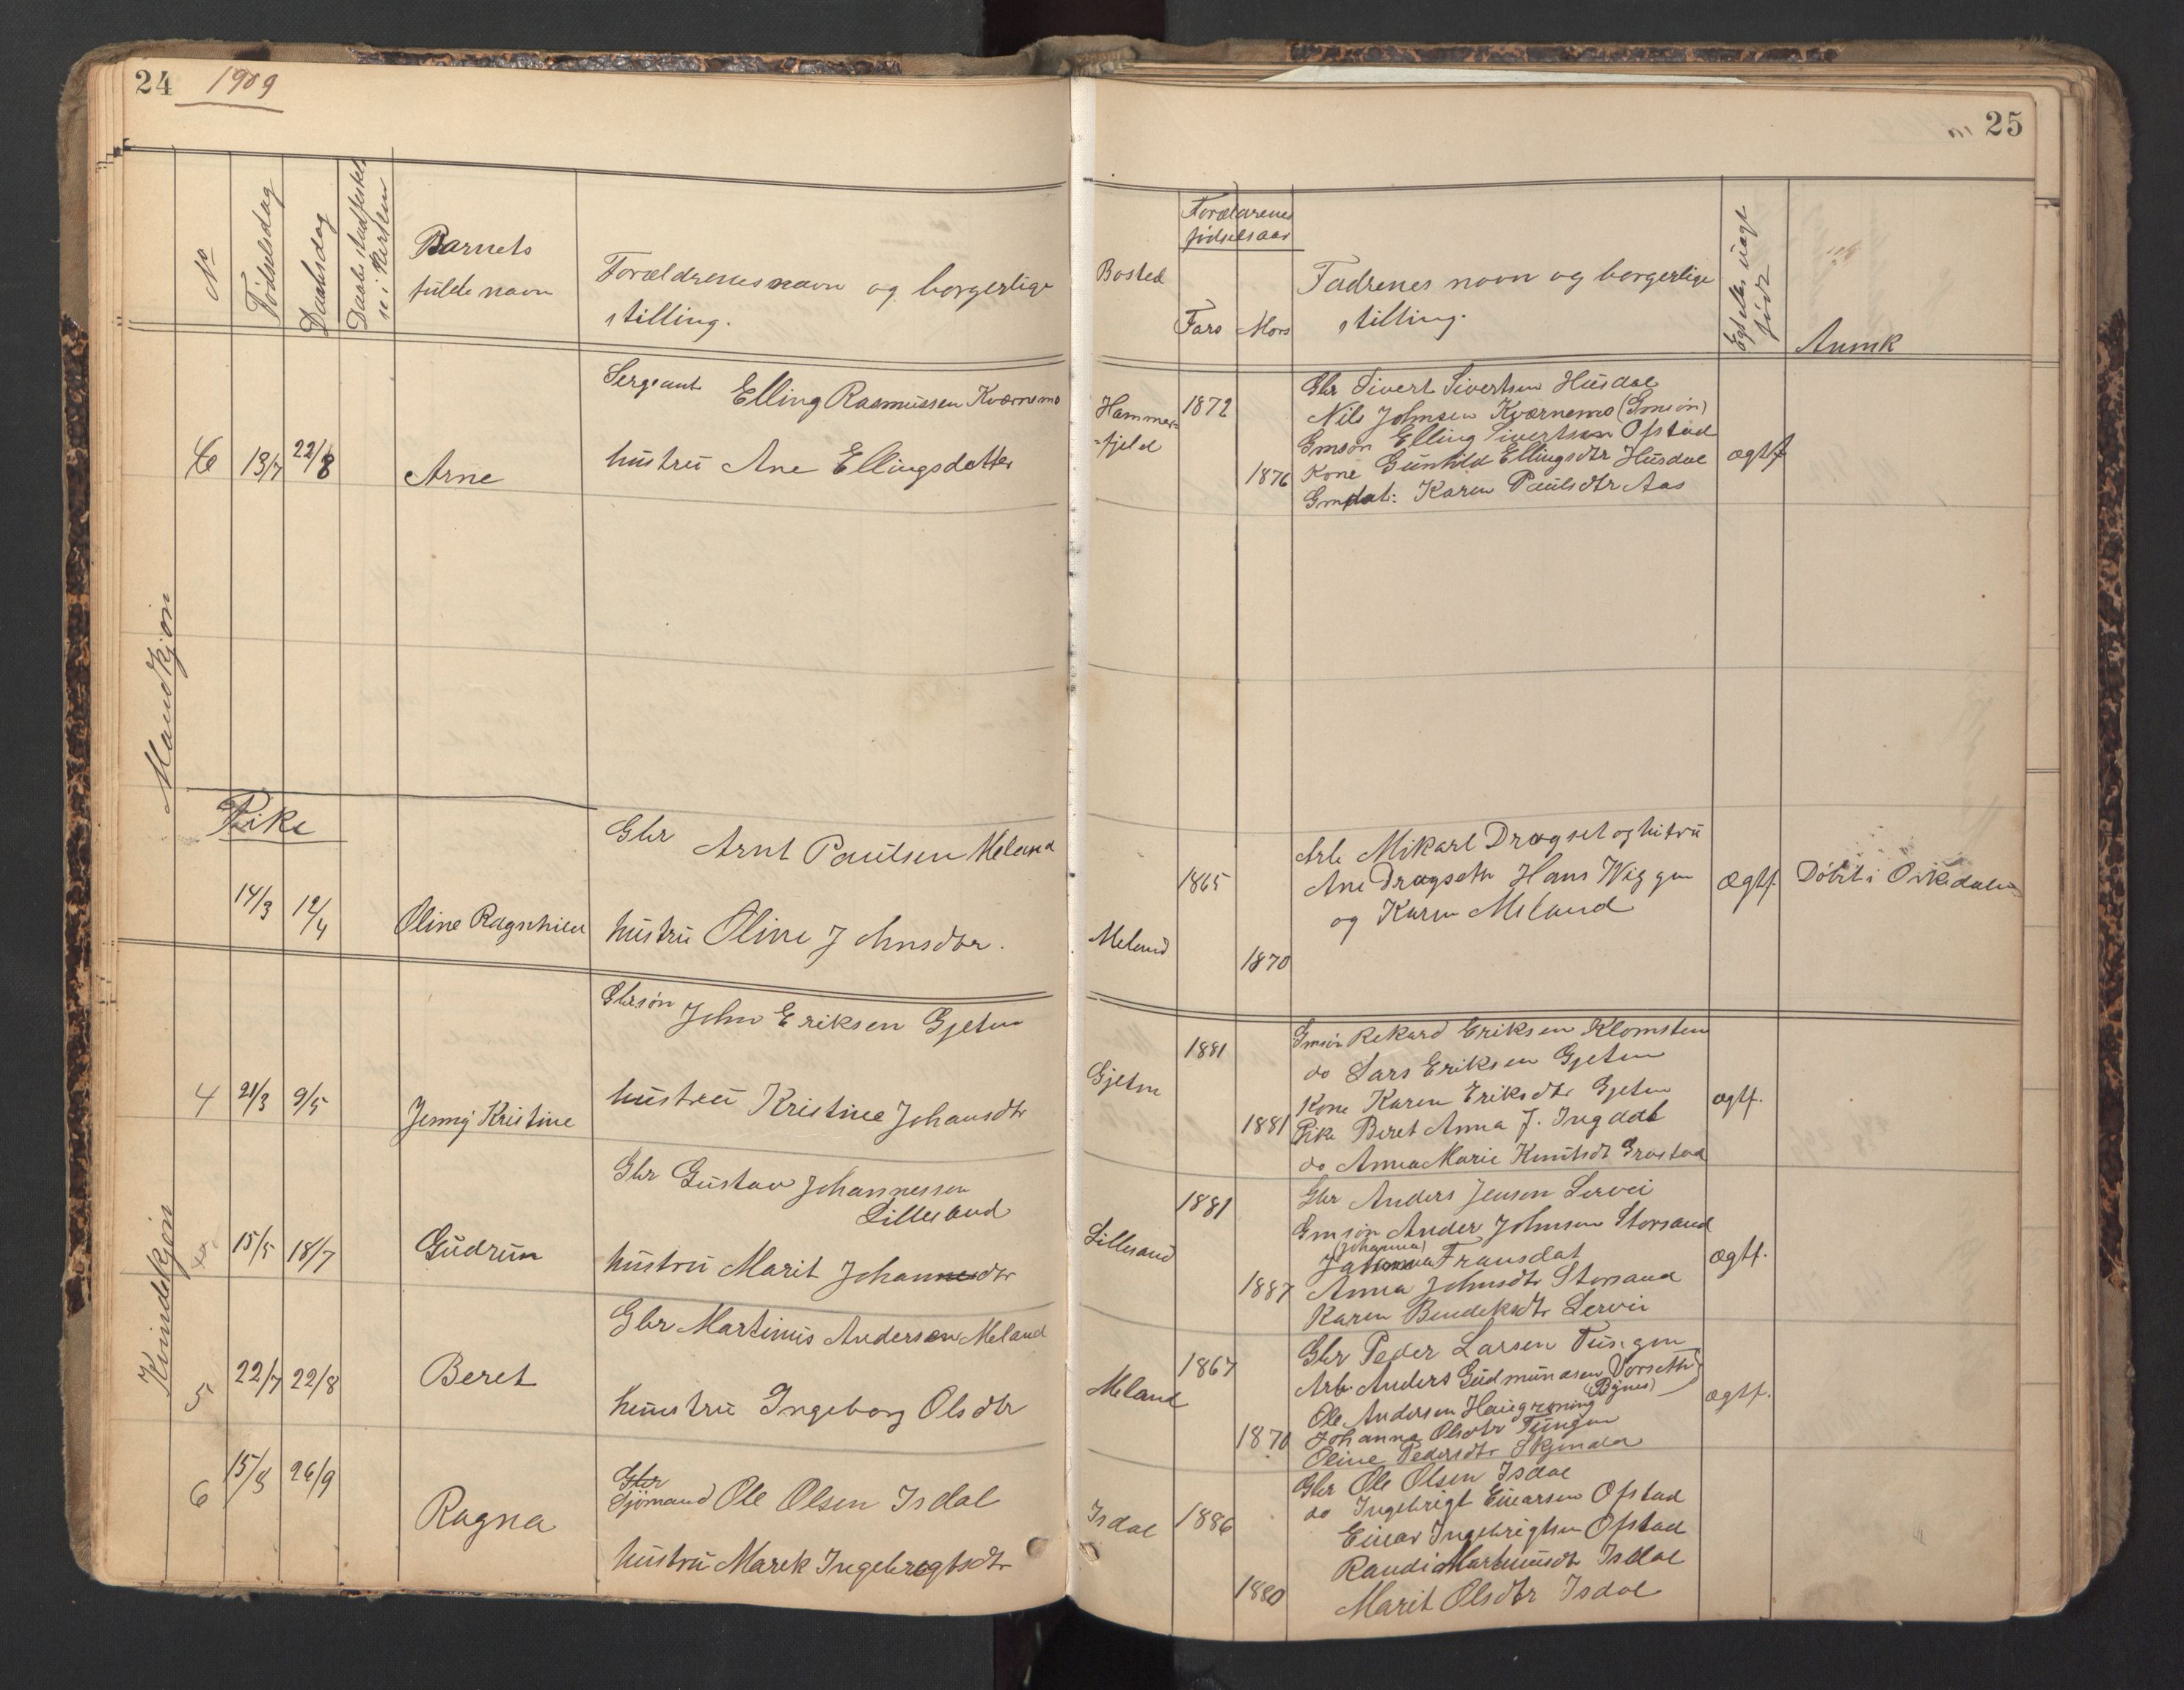 24 1909
No
Fødselsdag
Daabsdag
Daabs stadfestet
se i Kirken
Barnets
fulde navn
Forældrenes navn og borgerlige
stilling.
Mandkjøn
Sergeant Elling Rasmussen Kværnmo
6 13/7 22/8 Arne hustru Ane Ellingsdatter
Pike
Gbr Arnt Paulsen Meland
14/3 12/4 Oline Ragnhild hustru Oline Johnsdtr.
Kvindekjøn
Gbrsøn John Eriksen Gjeten
4 21/3 9/5 Jenny Kristine hustru Kristine Johansdtr
Gbr Gustav Johannessen
Lillesand
15/5 18/7 Gudrun hustru Marit Johannesdtr
Gbr Martinus Andersen Meland
5 22/7 22/8 Beret
hustru Ingeborg Olsdtr
6 15/8 26/9 Ragna
Gbr
Sjømand Ole Olsen Isdal
hustru Marek Ingebregtsdtr
25
Bosted
Forældrenes
fødselsaar
Fars Mors
Fadrenes navn og borgerlige
stilling.
Egte eller uegte
født
Anmk
Hammer=
=fjeld
1872
1876
Gbr Sivert Sivertsen Husdal
Nils Johnsen Kværnmo (Gmsøn)
Gmsøn Elling Sivertsen Ofstad
Kone Gunhild Ellingsdtr Husdal
Gmdat: Karen Paulsdtr Aas
ægtf
Meland
1865
1870
Arb Mikael Dragset og hstru
Ane Dragseth Hans Wiggen
og Karen Meland
Ægtf. Døbt i Orkedalen
Gjeten
1881
1881
Gmsøn Rikard Eriksen Klomsten
do Lars Eriksen Gjeten
Kone Karen Eriksdtr Gjeten
Pike Beret Anna J. Ingdal
do Anna Marie Knutsdt Grøstad
ægtf.
Lillesand
1881
1887
Gbr Anders Jensen Servei
Gmsøn Ander Johnsen Storsand
(Johanna)
Fransdat
Anna Johnsdtr Storsand
Karen Bendiksdtr Servei
ægtf.
Meland
1867
1870
Gbr Peder Larsen Tungen
Arb. Anders Gudmundsen Vorseth
(Bynes)
Ole Andersen Haugrøning
Johanna Olsdtr Tungen
Oline Pedersdtr Skjendal
ægtf.
Isdal
1886
1880
Gbr Ole Olsen Isdal
do Ingebrigt Einarsen Ofstad
Einar Ingebrigtsen Ofstad
Randi Martinusdt Isdal
Marit Olsdtr Isdal